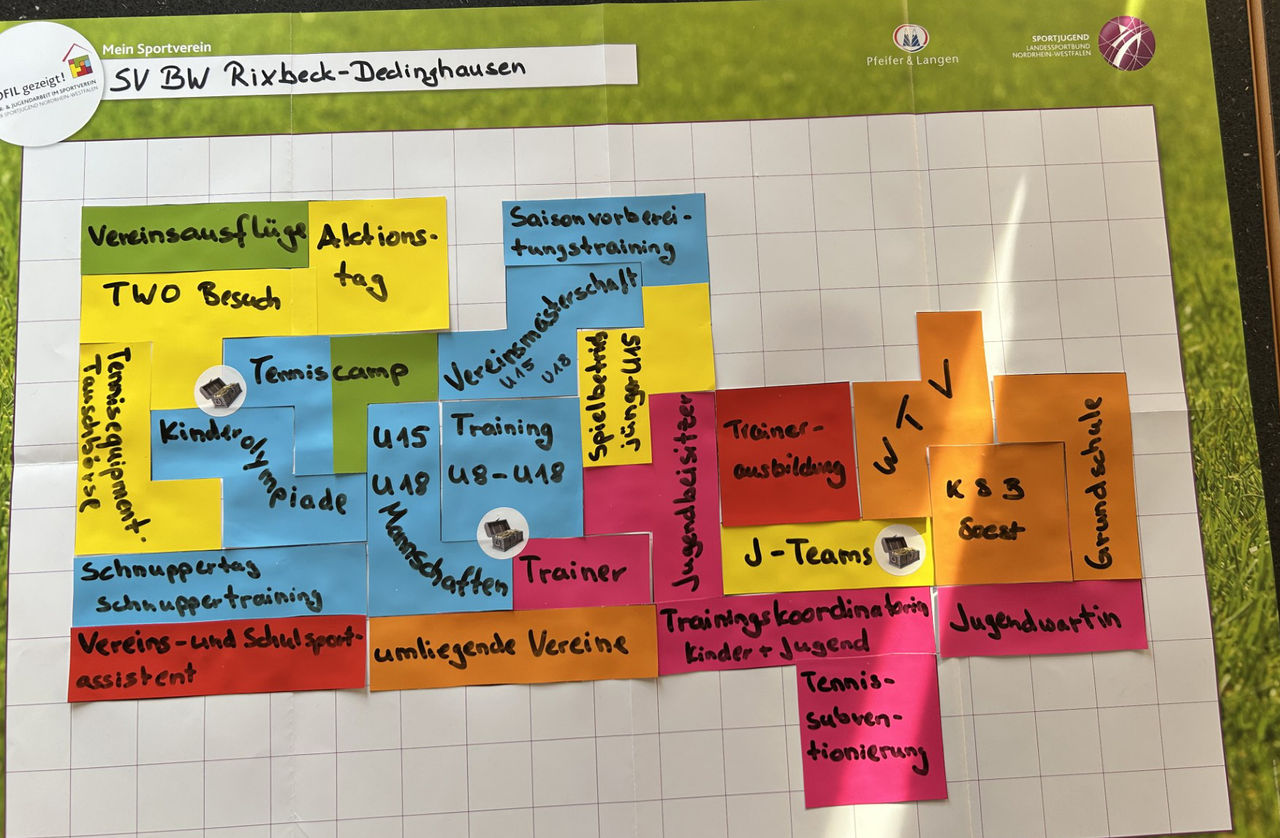 Mein Sportverein
SV BW Rixbeck-Dedinghausen
OFIL gezeigt!
& JUGENDARBEIT IM SPORTVEREIN
SPORTJUGEND NORDRHEIN-WESTFALEN
Pfeifer & Langen
SPORTJUGEND
LANDESSPORTBUND
NORDRHEIN-WESTFALEN
Vereinsausflüge
Aktions-
tag
TWO Besuch
Saisonvorberei-
tungstraining
Vereinsmeisterschaft
U15 U18
Tenniscamp
Spielbetrieb
jünger U15
Tennisequipment-
Tauschbörse
Kinderolympiade
U15
U18
Mannschaften
Training
U8-U18
Jugendbeisitzer
Trainer-
ausbildung
WTV
KSB
Soest
Grundschule
J-Teams
Schnuppertag
Schnuppertraining
Trainer
Vereins- und Schulsport-
assistent
umliegende Vereine
Trainingskoordinatorin
Kinder + Jugend
Jugendwartin
Tennis-
subven-
tionierung